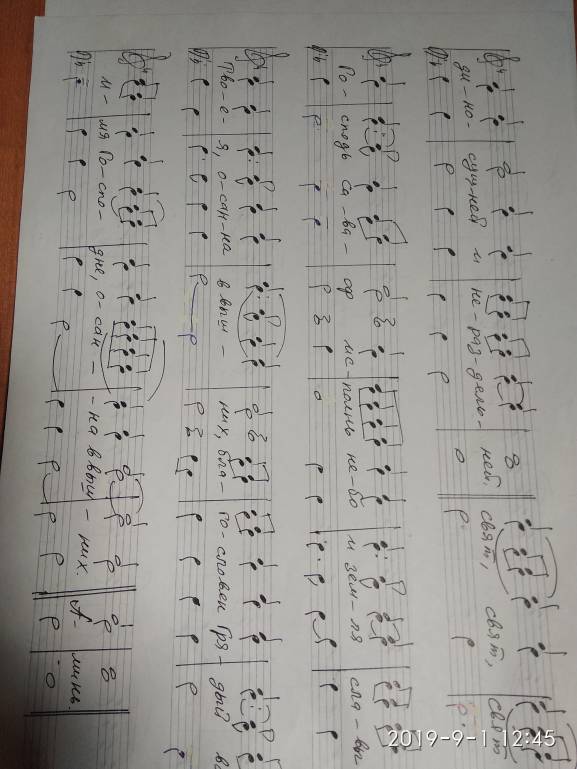 ди-но-сущ-ней и не-раз-дель-ней. свят, свят, свят
Го-сподь са-ва-оф ис-полнь не-бо и зем-ля сла-вы
Тво-е-я, о-сан-на в выш-них, бла-го-словен Гря-дый во
и-мя Го-спо-дне, о-сан-на в выш-них. А-минь.
2019-9-1 12:45